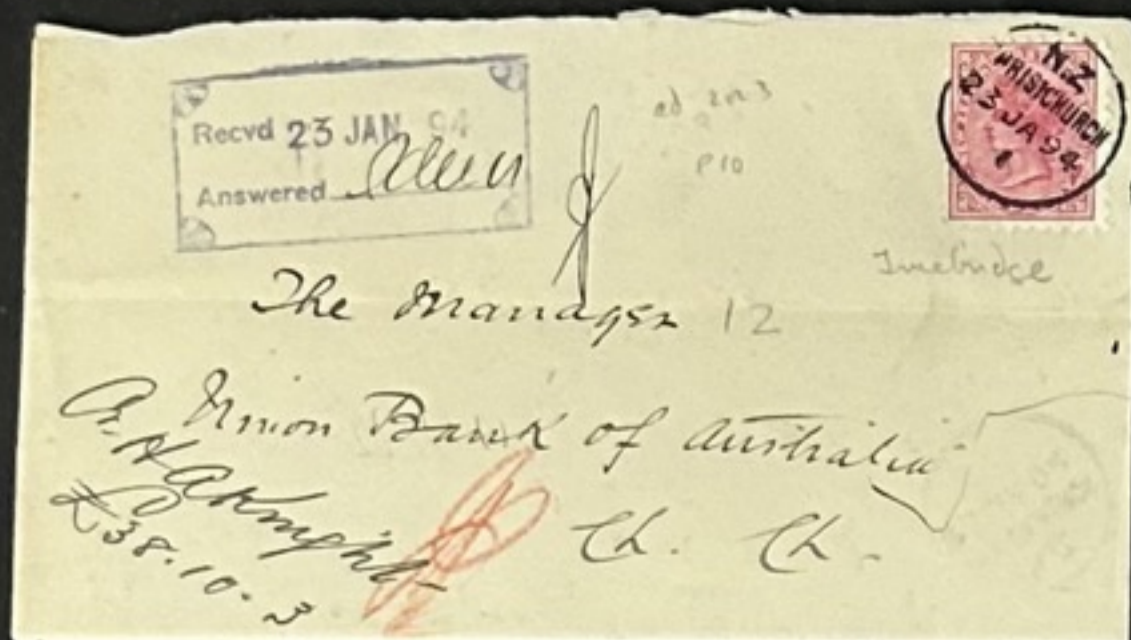 Recvd 23 JAN 94
Answered
ad 2 or 3
P10
N.Z
CHRISTCHURCH
23 JA 94
1
The Manager 12
Union Bank of Australia
Ch. Ch.
A Knight
£38.10.3